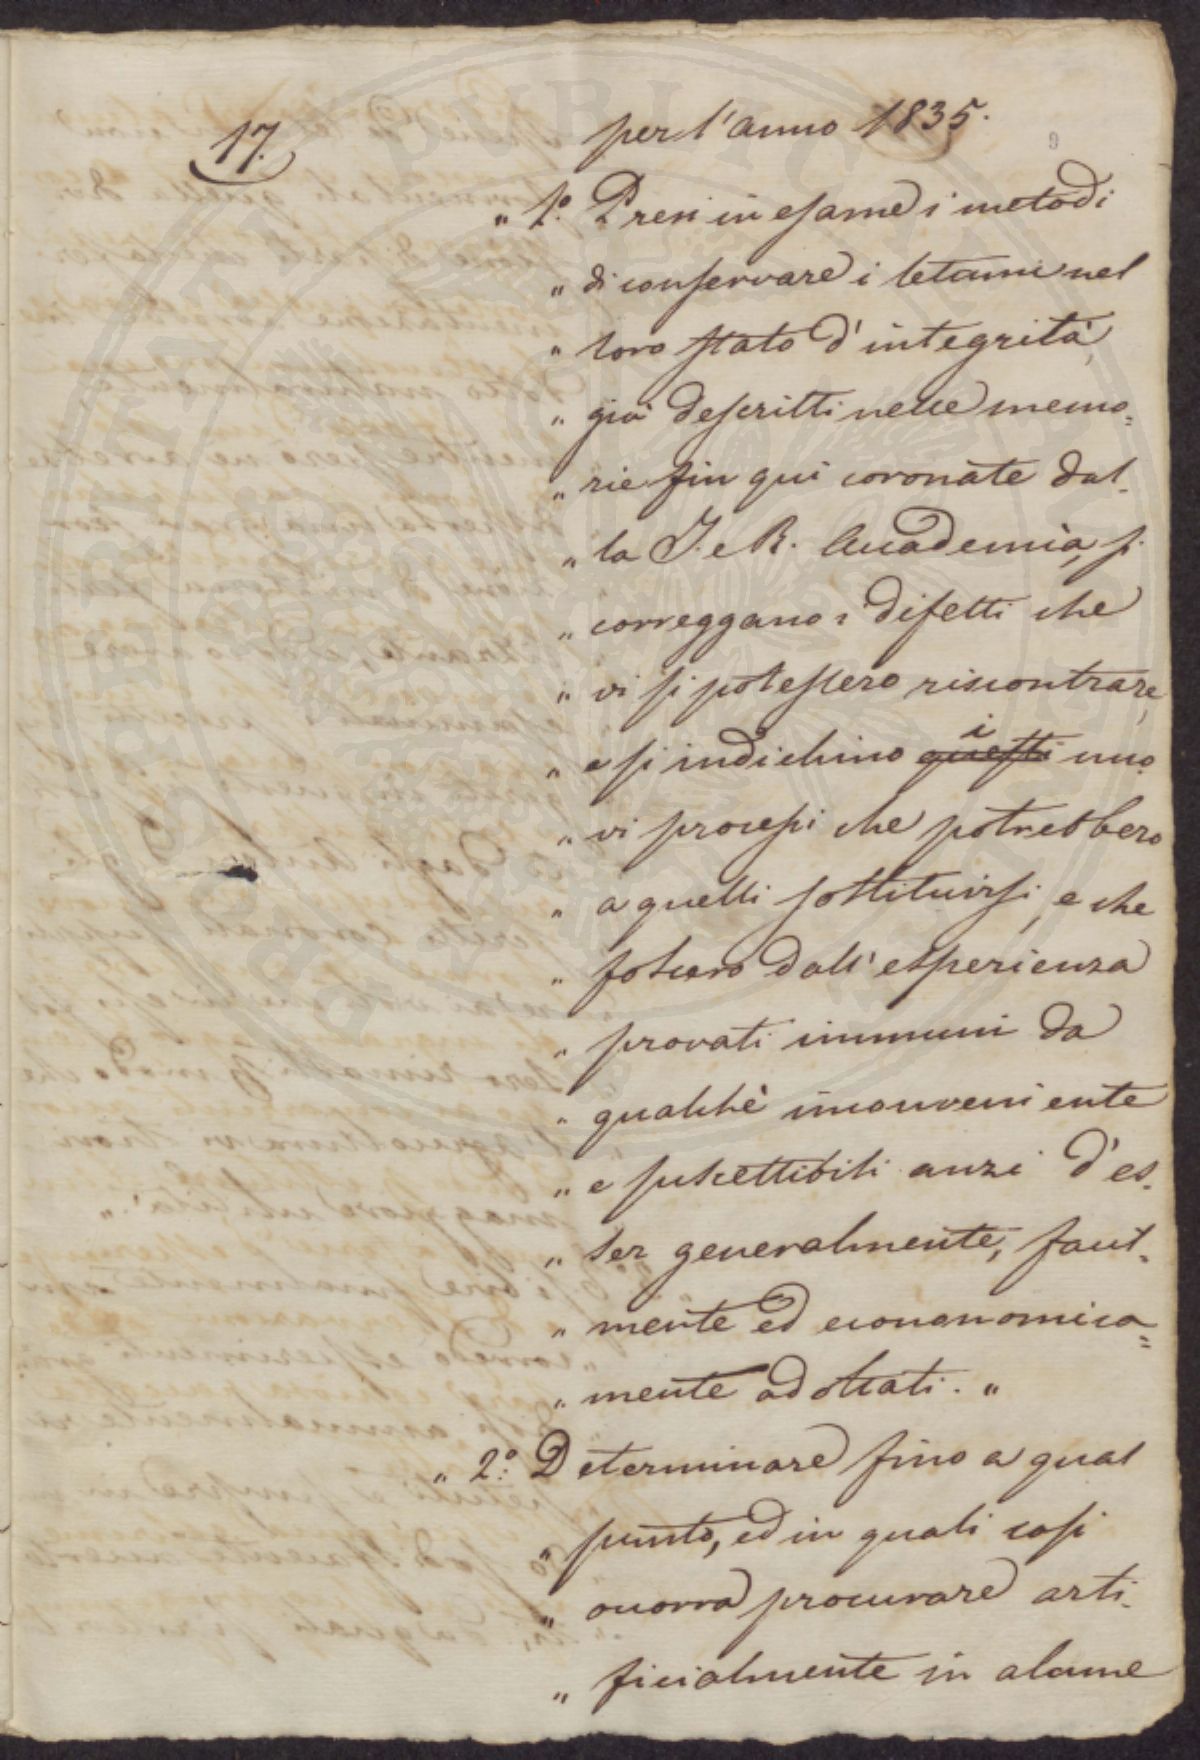 17.
per l'anno 1835.
„ 1.º Presi in esame i metodi
„ di conservare i letami nel
„ loro stato d'integrità,
„ già descritti nelle memo=
„ rie fin qui coronate dal-
„ la I. e R. Accademia, si
„ correggano i difetti che
„ vi si potessero riscontrare,
„ e si indichino ~~questi~~ i nuo-
„ vi processi che potrebbero
„ a quelli sostituirsi, e che
„ fossero dall'esperienza
„ provati immuni da
„ qualchè inconveniente
„ e suscettibili anzi d'es-
„ ser generalmente, facil-
„ mente ed econonomica=
„ mente adottati. „
„ 2.º Determinare fino a qual
„ punto, ed in quali casi
„ occorra procurare arti-
„ ficialmente in alcune